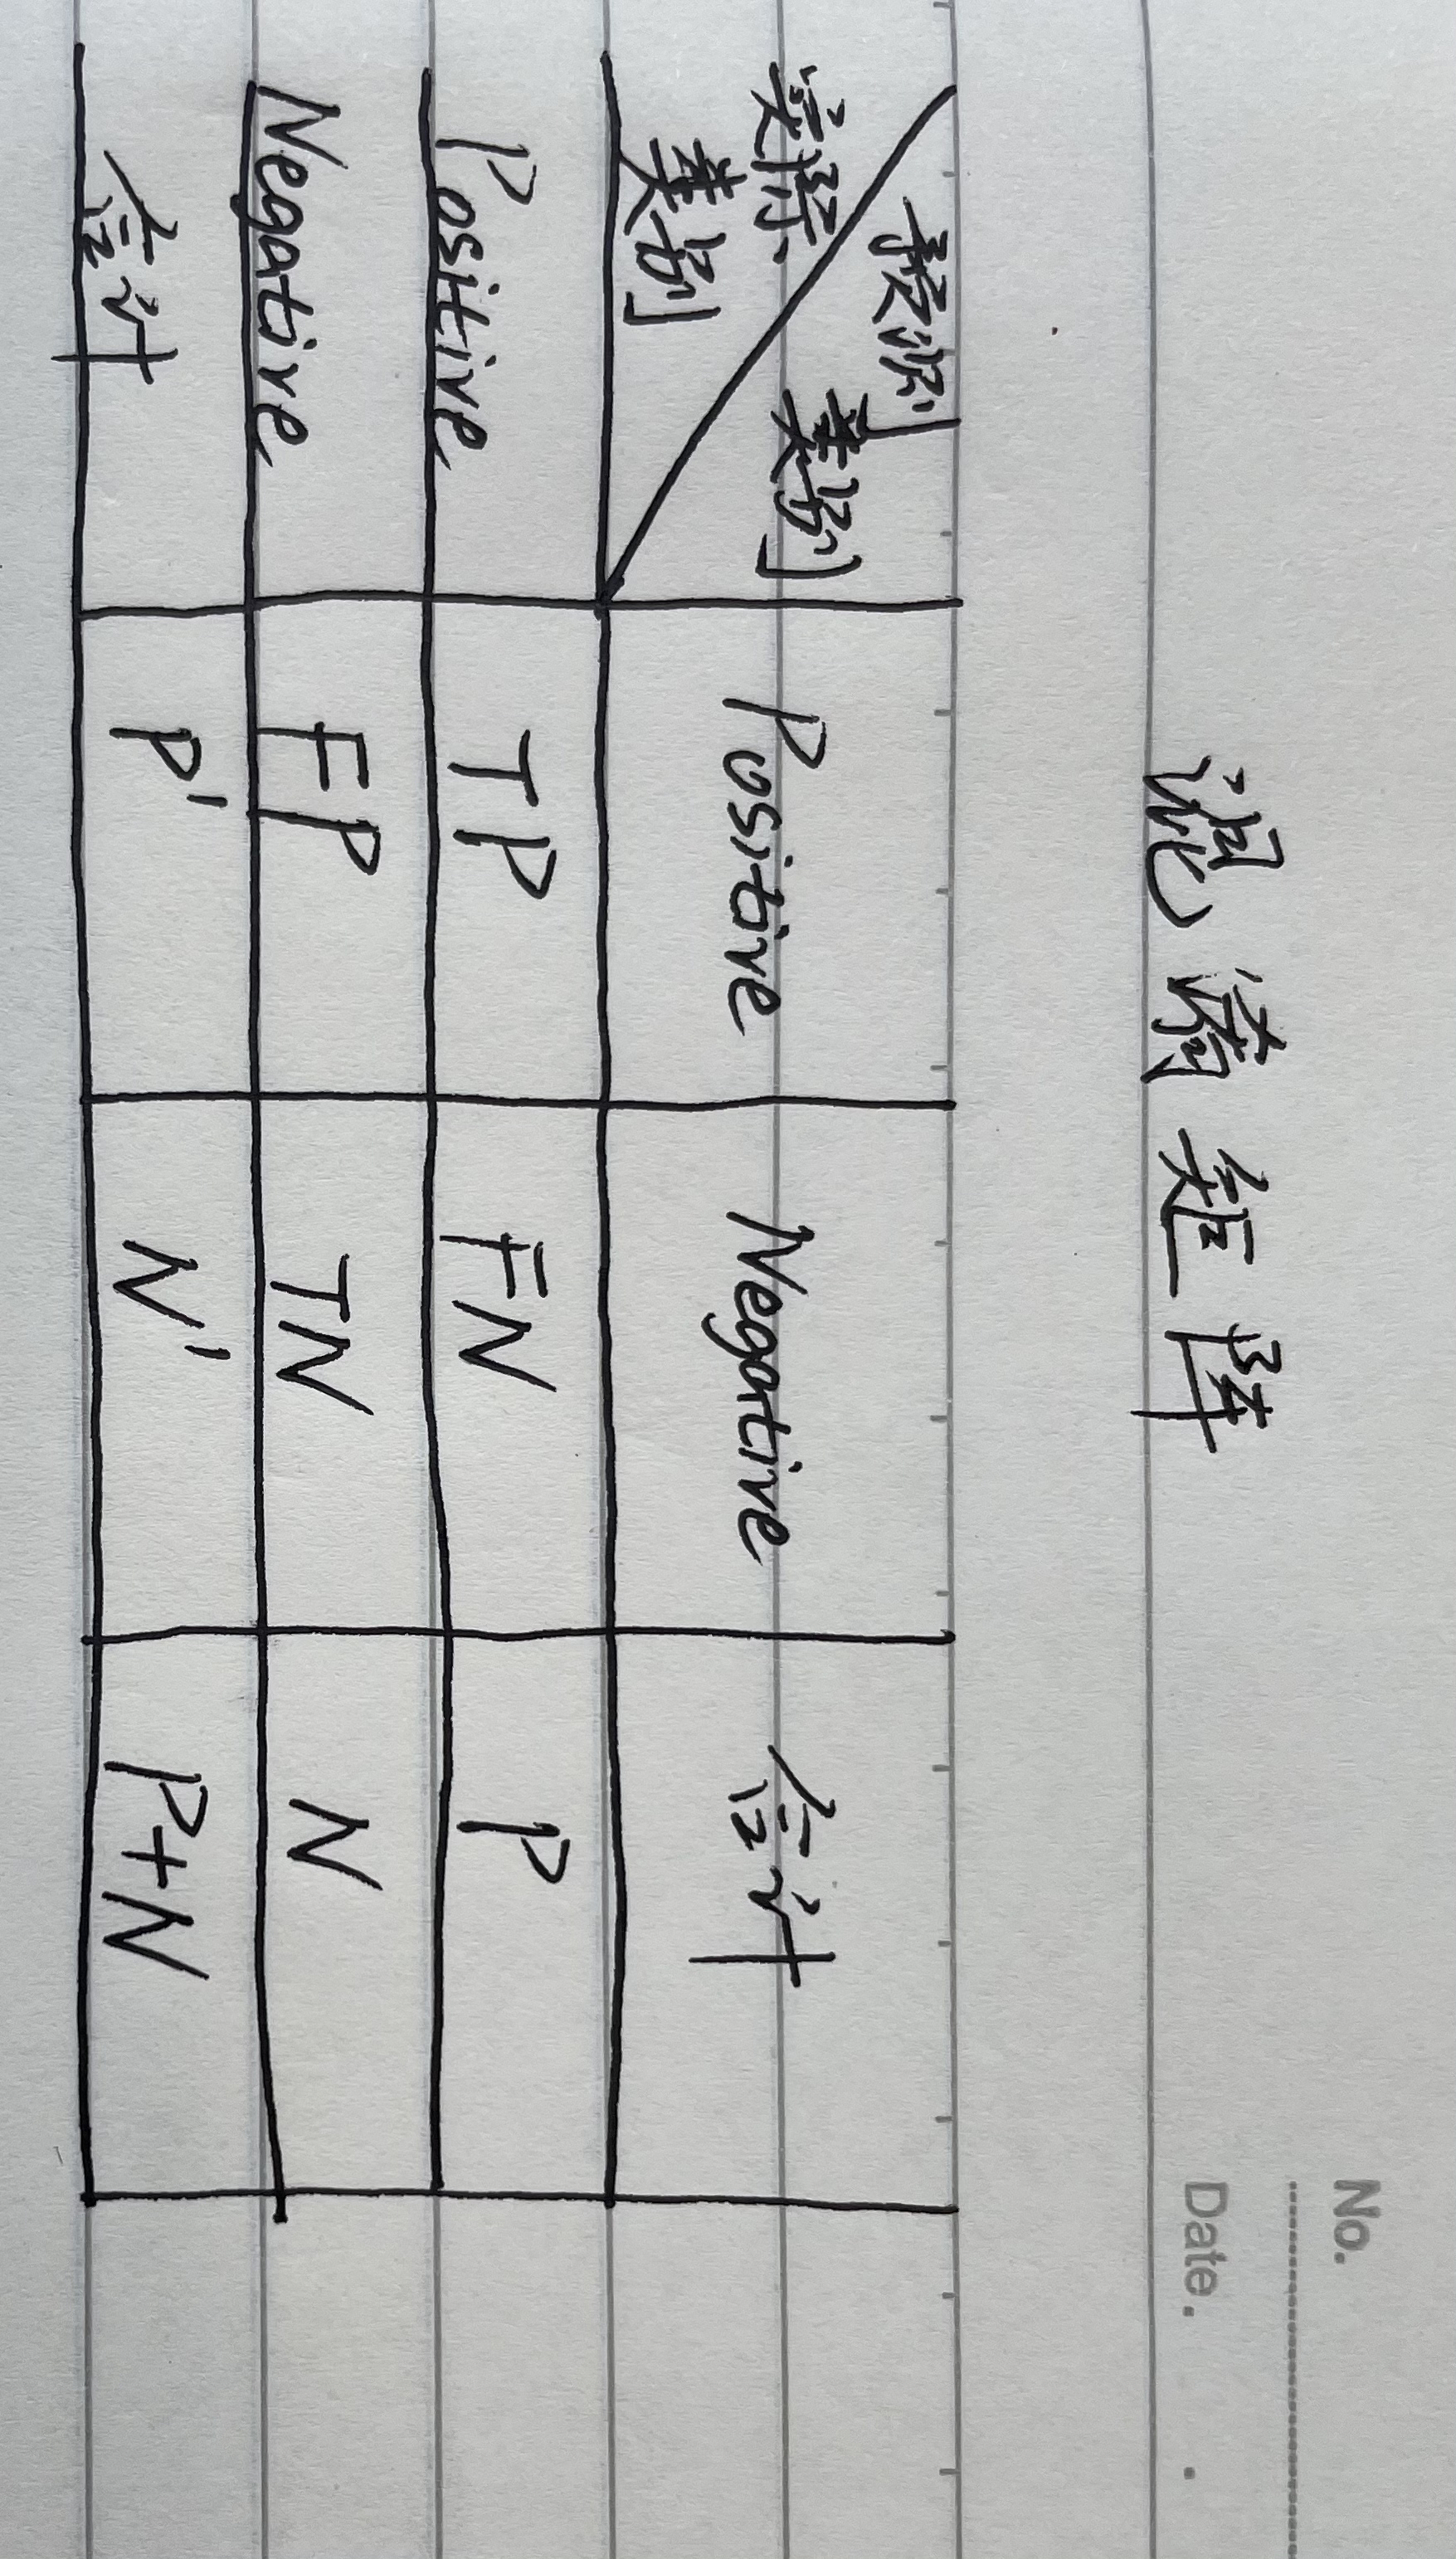 No.
Date. .
混淆矩阵
预测类别 Positive Negative 合计
实际类别
Positive TP FN P
Negative FP TN N
合计 P' N' P+N